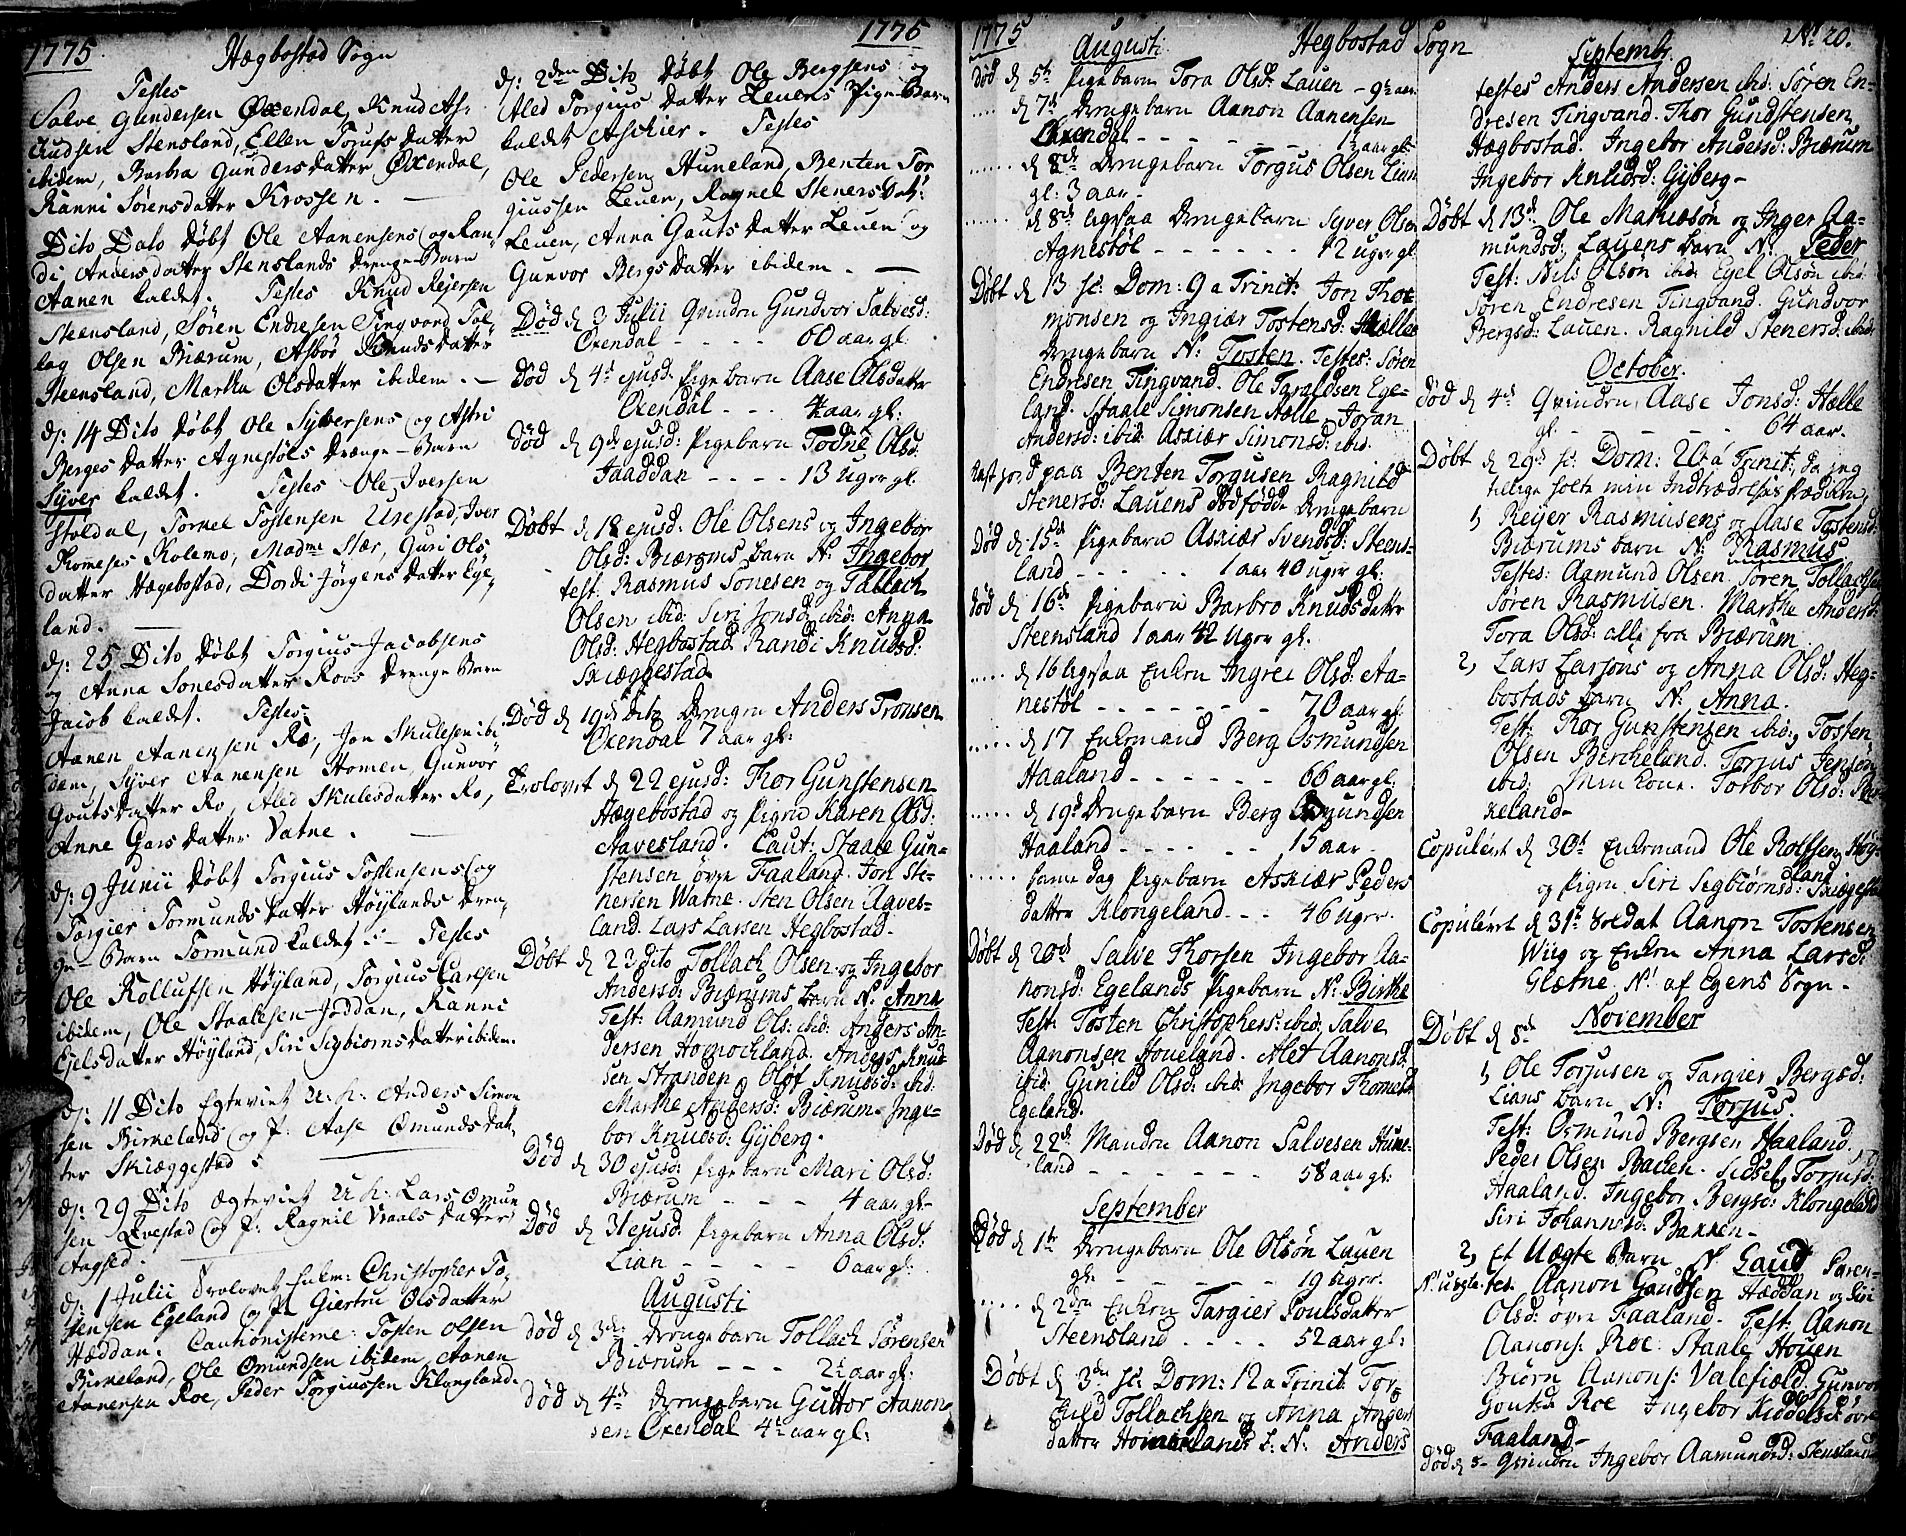 1775
Hægbostad Sogn
Testes
Salve Gundersen Oxendal, Knud As-
lludsen Stensland, Ellen Torufs datter
ibidem, Barbra Gunders datter Oxendal,
Ranni Sørensdatter Krossen. —
Dito Dato døbt Ole Aanensens og Ran-
di Andersdatter Stenslands Drenge-Barn
Aanen kaldet. Testes Knud Reiersen
Steensland, Søren Endresen Tingvord Tol-
lag Olsen Biærum, Asbor Knudsdatter
Steensland, Martha Olsdatter ibidem. —
dj: 14 Dito døbt Ole Syversens og Astri
Berges datter Agnestøls Drænge-Barn
Syver kaldet. Testes Ole Iversen
Støldal, Tornel Tostensen Urestad, Iver
Thommeses Kolemo, Madme Stær, Guri Ols-
datter Hægebostad, Dordi Jørgens datter Ege-
land. —
dj: 25 Dito døbt Torgius Jacobsens
og Anna Sonesdatter Roos Drenge Barn
Jacob kaldet. Testes
Aanen Aanensen Ro, Jon Skulesen ibi-
dem, Syver Aanensen Homen, Gunvor
Goutsdatter Ro, Aled Skulesdatter Ro,
Anne Gars datter Vatne.
dj: 9 Junii døbt Torgius Tostensens og
Torgier Tormunds datter Høylands Dren-
ge-Barn Tormund kaldet :- Testes
Ole Rollufsen Høyland, Torgius Carlsen
ibidem, Ole Staalesen Joddan, Ranni
Ejelsdatter Høyland, Siri Sigbiornsdatter ibidem.
dj: 11 Dito Egteviet U: k: Anders Simon
sen Birkeland og P: Aase Omunds dat-
ter Skiæggestad :
dj: 29 Dito Egteviet U k: Lars Omun
sen Qvestad og P: Ragnil Vraals datter
Aagsed.
dj: 1 Julii Trolovet Enkm: Christopher To-
stensen Egeland og P: Giertru Olsdatter
Hæddan. Cautionisterne: Tosten Olsen
Birkeland, Ole Omundsen ibidem, Aanen
Aanensen Roe, Peder Torgiussen Klongland.
1775
dj: 2den Dito Døbt Ole Bergsens og
Aled Torgius datter Leuens Pige-Barn
kaldet Aschier. Testes
Ole Pedersen Huneland, Benten Tor
giussen Leuen, Ragnel Steners dat:
Leuen, Anna Gauts datter Leuen og
Gunvor Bergs datter ibidem. —
Død d 3 Julii Qvinden Gundvor Salvesd:
Oxendal - - - - 60 aar gl:
Død d 4de ejusd: Pigebarn Aase Olsdatter
Oxendal - - - 4 aar gl:
Død d 9de ejusd: Pigebarn Todne Olsd:
Jaaddan - - - - 13 Uger gl.
Døbt d 18 ejusd: Ole Olsens og Ingebor
Olsd: Biærums barn N: Ingebor
test: Rasmus Sonesen og Tallach
Olsen ibid: Siri Jonsd: ibid: Anna
Olsd: Hegbostad Randi Knudsd:
Skiæggestad
Død d 19de dito Drengen Anders Tronsen
Oxendal 7 aar gl:
Trolovet d 22 ejusd: Thor Gunstensen
Hægebostad og Pigen Karen Olsd:
Aavesland. Caut: Staale Gun-
stensen øvre Faaland. Jon Ste-
nersen Watne. Sten Olsen Aaves-
land. Lars Larsen Hegbostad.
Døbt d 22 dito Tollach Olsen og Ingebor
Andersd: Biærums barn N: Anna
Test: Aamund Ols: ibid: Anders An-
dersen Homochland. Anders Knud
sen Stranden. Oløf Knudsd: ibid:
Marthe Andersd: Biærum. Inge-
bor Knudsd: Gyberg.
Død d 30 ejusd: Pigebarn Mari Olsd:
Biærum - - - 4 aar gl-
Død d 31 ejusd: Pigebarn Anna Olsd:
Lian - - - - 6 aar gl:
Augusti
Død d 3de Drengebarn Tollach Sørensen
Biærum - - - 2½ aar gl:
Død d 4de Drengebarn Guttor Aanon-
sen Oxendal 4½ aar gl:
1775 Augusti Hegbostad Sogn
Død d 5te Pigebarn Tora Olsd: Lauen - 9½ aar
.... d 7de Drengebarn Aanon Aanensen
Oxendal - - - - - ½ aar gl:
..... d 8de Drengebarn Torgus Olsen Lian
gl: 3 aar -
..... d 8de ligesaa Drengebarn Syver Olsen
Agnestøl - - - - - 12 uger gl:
Døbt d 13 sc: Dom: 9 a Trinit: Jon Thor
monsen og Ingiær Tostensd: Hælle
Drengebarn N: Tosten. Testes: Søren
Endresen Tingvand. Ole Taraldsen Ege-
land. Staale Simonsen Hælle Joran
Andersd: ibid: Askiær Simonsd: ibid:
Kast jord paa Benten Torgusen Ragnild
Stenersd: Lauens dødfødde Drengebarn
Død d 15de Pigebarn Askiær Svendsd: Steens-
land - - - - - 1 aar 40 uger gl:
Død d 16de Pigebarn Barbro Knudsdatter
Steensland 1 aar 42 Uger gl:
..... d 16 ligesaa Enken Ingrei Olsd: Aa-
nestøl - - - - - - - 70 aar gl:
..... d 17 Enkemand Berg Osmundsen
Haaland - - - - - - 66 aar gl.
..... d 19de Drengebarn Berg Osmundsen
Haaland - - - - - 15 aar -
..... samme dag Pigebarn Askiær Peders
datter Klongeland - - - 46 uger.
Døbt d 20de Salve Thorsen Ingebor Aa-
nonsd: Egelands Pigebarn N: Birthe
Test: Tosten Christophers: ibid: Salve
Aanonsen Houeland. Alet Aanonsd:
ibid: Gunild Olsd: ibid: Ingebor Thomasd:
Egeland.
Død d 22de Manden Aanon Salvesen Hune-
land - - - - - - 58 aar gl:
September
Død d 1te Drengebarn Ole Olsøn Lauen
gl: - - - - - - 19 Uger.
..... d 2den Enken Targier Poulsdatter
Steensland - - - - 52 aar gl:
Døbt d 3de sc: Dom: 12 a Trinit: Tor-
kield Tollachsen og Anna Anders
datter Homoklands b: N: Anders
Septembr.
No. 20.
testes Anders Andersen ibid: Søren En-
dresen Tingvand. Thor Gundstensen
Hægbostad. Ingebor Andersd: Biærum
Ingebor Knudsd: Gyberg -
Døbt d 13de Ole Mathiesøn og Inger Aa-
mundsd: Lauens barn N: Peder
Test: Nils Olsøn ibid: Egel Olsøn ibid:
Søren Endresen Tingvand. Gundvor
Bergsd: Lauen. Ragnild Stenersd: ibid:
October.
Død d 4de Qvinden Aase Jonsd: Hælle
gl: - - - - - - 64 aar.
Døbt d 29de sc: Dom: 20 a Trinit, da jeg
tillige holte min Indtrædelses Prædiken,
1, Reyer Rasmusens og Aase Tostensd:
Biærums barn N: Rasmus
Testes: Aamund Olsen. Søren Tollachsen
Søren Rasmusen. Marthe Andersd:
Tora Olsd: alle fra Biærum
2, Lars Larsons og Anna Olsd: Heg-
bostads barn N: Anna.
Test: Thor Gunstensen ibid: Tosten
Olsen Bircheland. Torjus Jensøn
ibid: min kone. Torbor Olsd: Bir-
keland -
Copuleret d 30te Enkemand Ole Rolfsen Høy-
land
og Pigen Siri Segbiørnsd: Skiægestad
Copuleret d 31te Soldat Aanon Tostensen
Wiig og Enken Anna Larsd:
Glætne N: af Egens Sogn -
November
Døbt d 5te
1, Ole Torjusen og Targier Bergsd:
Lians barn N: Torjus
Test: Osmund Bergsen Haaland.
Peder Olsen Backen. Sidsel Torjusd:
Haaland. Ingebor Bergsd: Klongeland
Siri Johannsd: Bakken -
2, Et Uægte Barn N: Gaud Paren-
tes: Aanon Gaudsen Hæddan og Siri
Olsd: øvre Faaland. Test: Aanon
Aanons: Roe. Staale Houen
Biørn Aanons: Valefiæld. Gunvor
Goutsd: Roe Ingebor Kiddelsd: øvre
Faaland -
Død d 5- Qvinden Ingebor Aamundsd: Stensland